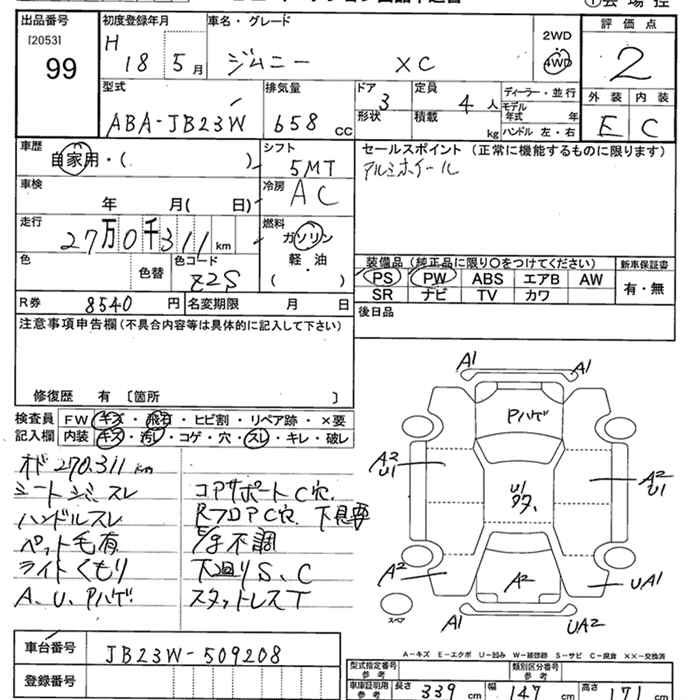 出品番号 初度登録年月 車名・グレード 評価点
[2053] 99 H 18 5月 ジムニー XC 2WD 4WD 2
型式 排気量 ドア 3 定員 4人 ディーラー・並行 外装 内装
ABA-JB23W 658 cc 形状 積載 kg モデル年式 年 ハンドル 左・右 E C
車歴 自家用・( ) シフト 5MT セールスポイント (正常に機能するものに限ります)
車検 年 月( 日) 冷房 AC アルミホイール
走行 27万0千311 km 燃料 ガソリン
色 色替 色コード Z2S 軽・油 ( ) 装備品 (純正品に限り○をつけてください) 新車保証書
PS PW ABS エアB AW 有・無
SR ナビ TV カワ
R券 8540円 名変期限 月 日 後日品
注意事項申告欄(不具合内容等は具体的に記入して下さい)
修復歴 有 [箇所 ]
検査員 FW キズ・飛石・ヒビ割・リペア跡・×要
記入欄 内装 キズ・汚レ・コゲ・穴・スレ・キレ・破レ
オド270,311km
シートシミスレ コアサポートC穴.
ハンドルスレ RフロアC穴.下見要
ペット毛有 E/g不調
ライトくもり 下廻りS、C
A、U、Pハゲ スタットレスT
A1 A1
Pハゲ
A2 U1 A2 U1
U1
A2 A2 UA1
スペア A1 UA2
A-キズ E-エクボ U-凹み W-補修跡 S-サビ C-腐食 ××-交換済
車台番号 JB23W-509208
登録番号
型式指定番号 参考 類別区分番号 参考
車庫証明用 参考 長さ 339 cm 幅 147 cm 高さ 171 cm